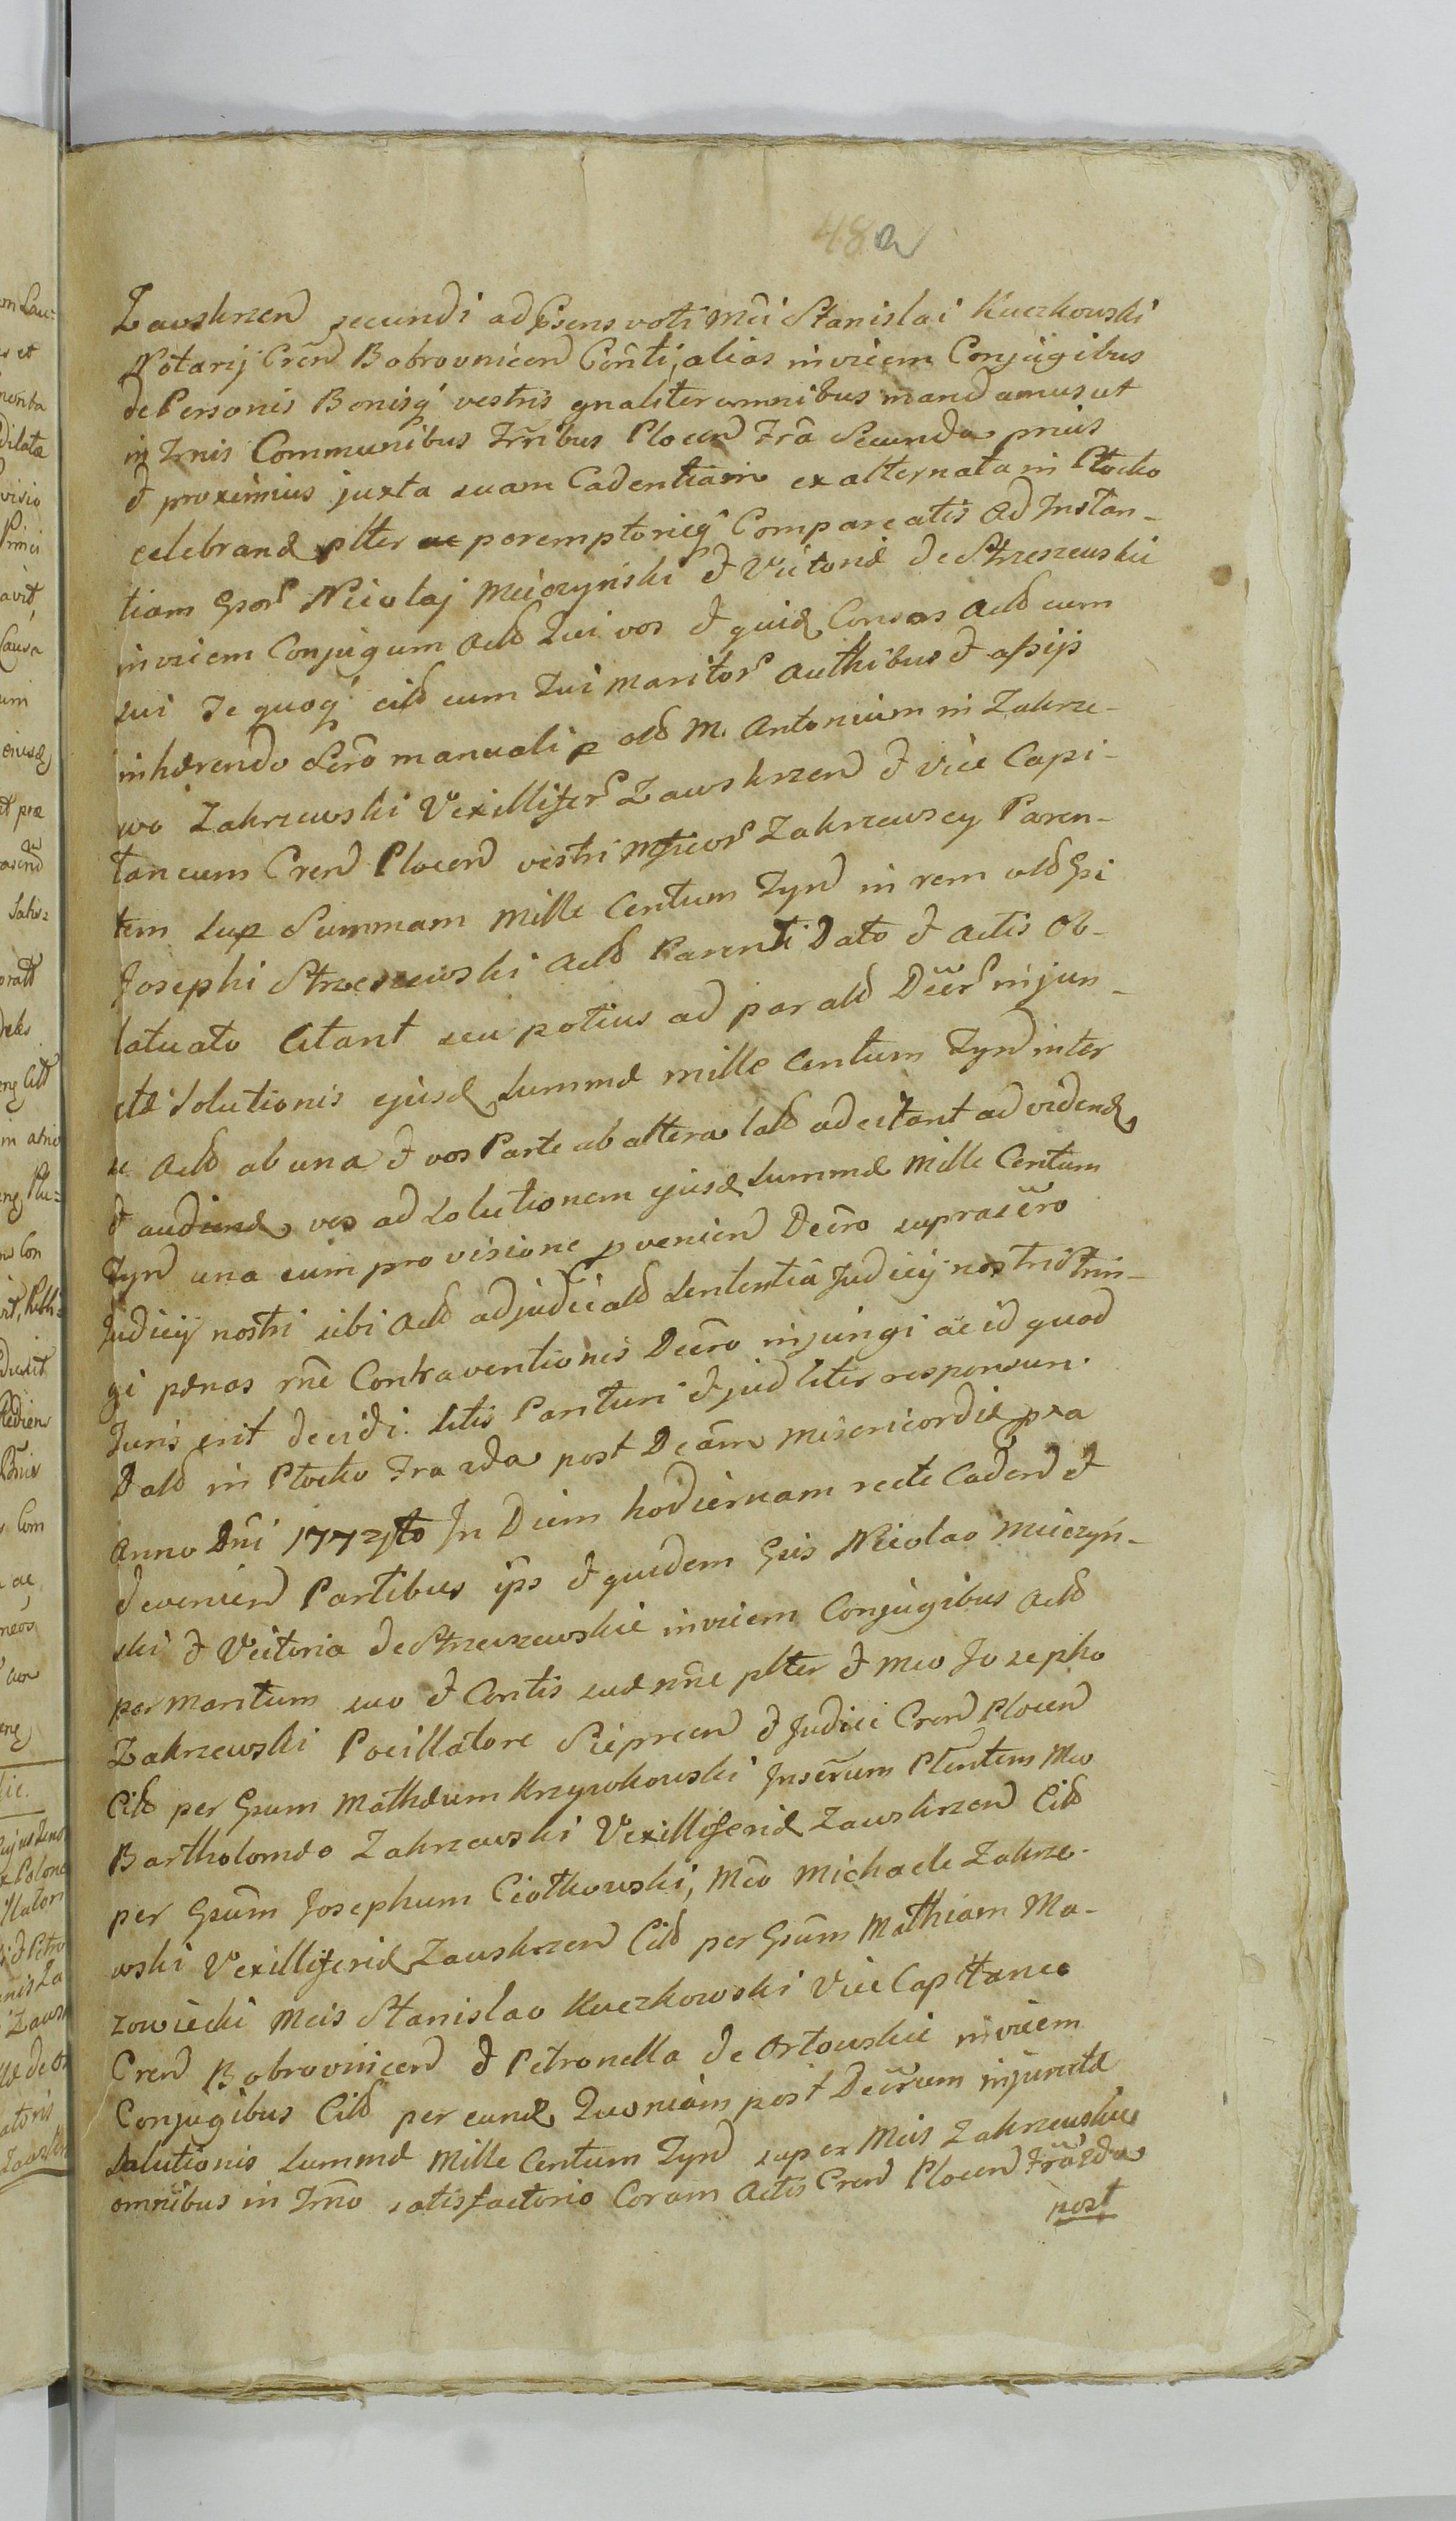 48a
Zawskrzen secundi ad Psens voti Mci Stanislai Kuczkowski
Notarij Cren Bobrovnicen Conti, alias invicem Conjugibus
de Personis Bonisq vestris gnaliter omnibus mandamus ut
in Trnis Communibus Trribus Plocen Fra Secunda prius
et proximius juxta suam Cadentiam ex alternata in Płocko
celebrand plter ac peremptorieq Compareatis ad Instan-
tiam Gsor Nicolaj Miiczynski et Victoriæ de Strzeszewskie
invicem Conjugum Act Qui vos et quid Consors Act cum
sui Te quoq cit cum Tui Maritor Authibus et assijs
inhærendo Scro manuali p olt M. Antonium in Zakrze-
wo Zakrzewski Vexillifer Zawskrzen et Vice Capi-
taneum Cren Plocen vestri Mficor Zakrzewscy Paren-
tem sup Summam Mille Centum Tyn in rem olt Gsi
Josephi Strzeszewski Act Parenti Dato et Actis Ob-
latuato Citant seu potius ad par alt Decr injun-
ctæ solutionis ejusd summæ mille Centum Tyn inter
se Act ab una et vos Parte ab altera lalt adcitant ad vidend
et audiend vos ad solutionem ejusd summæ Mille Centum
Tyn una cum provisione pvenien Decro suprascro
Judicij nostri sibi Act adjudicalt sententia Judicij nostri Strin-
gi pænas rne Contraventionis Decro injungi ac id quod
Juris erit decidi. Sitis Parituri et judliter responsuri.
Dalt in Płocko Fra 2da post Dcam Misericordiæ pxa
Anno Dni 1772to In Diem hodiernam recte Caden et
devenien Partibus ips et quidem Gsis Nicolao Miiczyń-
ski et Victoria de Strzeszewskie invicem Conjugibus Act
per maritum suo et Contis suæ nne plter et Mco Josepho
Zakrzewski Pocillatore Sieprcen et Judici Cren Plocen
Cit per Gsum Mathæum Krzywkowski Inscrum Plentem Mco
Bartholomæo Zakrzewski Vexilliferid Zawskrzen Cit
per Gsum Josephum Ciołkowski, Mco Michaele Zakrze-
wski Vexilliferid Zawskrzen Cit per Gsum Mathiam Ma-
zowiecki Mcis Stanislao Kuczkowski Vice Capitaneo
Cren Bobrovnicen et Petronella de Orłowskie invicem
Conjugibus Cit per eund Quoniam post Decrum injunctæ
Solutionis summæ Mille Centum Tyn super Mcis Zakrzewskie
omnibus in Trno satisfactorio Coram Actis Cren Plocen Fra 2da
post